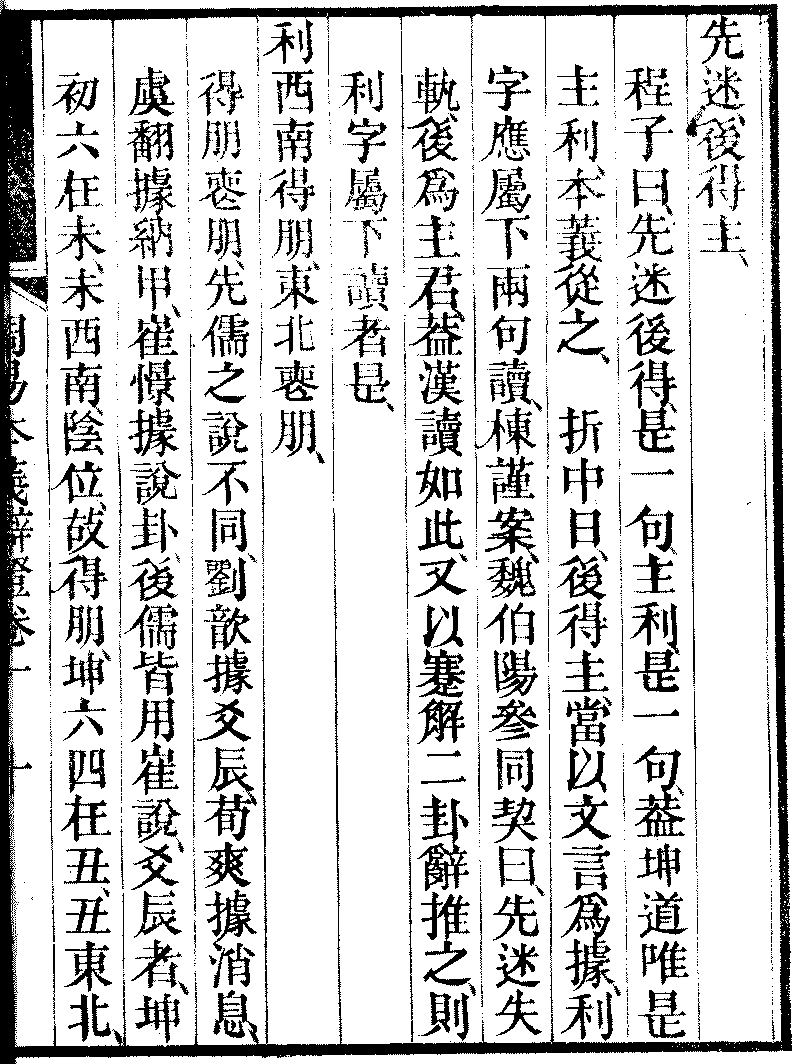 先迷後得主、
程子曰、先迷後得、是一句、主利、是一句、葢坤道唯是
主利、本義從之、　折中曰、後得主、當以文言爲據、利
字應屬下兩句讀、棟謹案、魏伯陽參同契曰、先迷失
軌、後爲主君、葢漢讀如此、又以蹇解二卦辭推之、則
利字屬下讀者是、
利西南得朋、東北喪朋、
得朋喪朋、先儒之說不同、劉歆據爻辰、荀爽據消息、
虞翻據納甲、崔憬據說卦、後儒皆用崔說、爻辰者、坤
初六在未、未西南、陰位、故得朋、坤六四在丑、丑東北、
周易本義辯證卷一　十